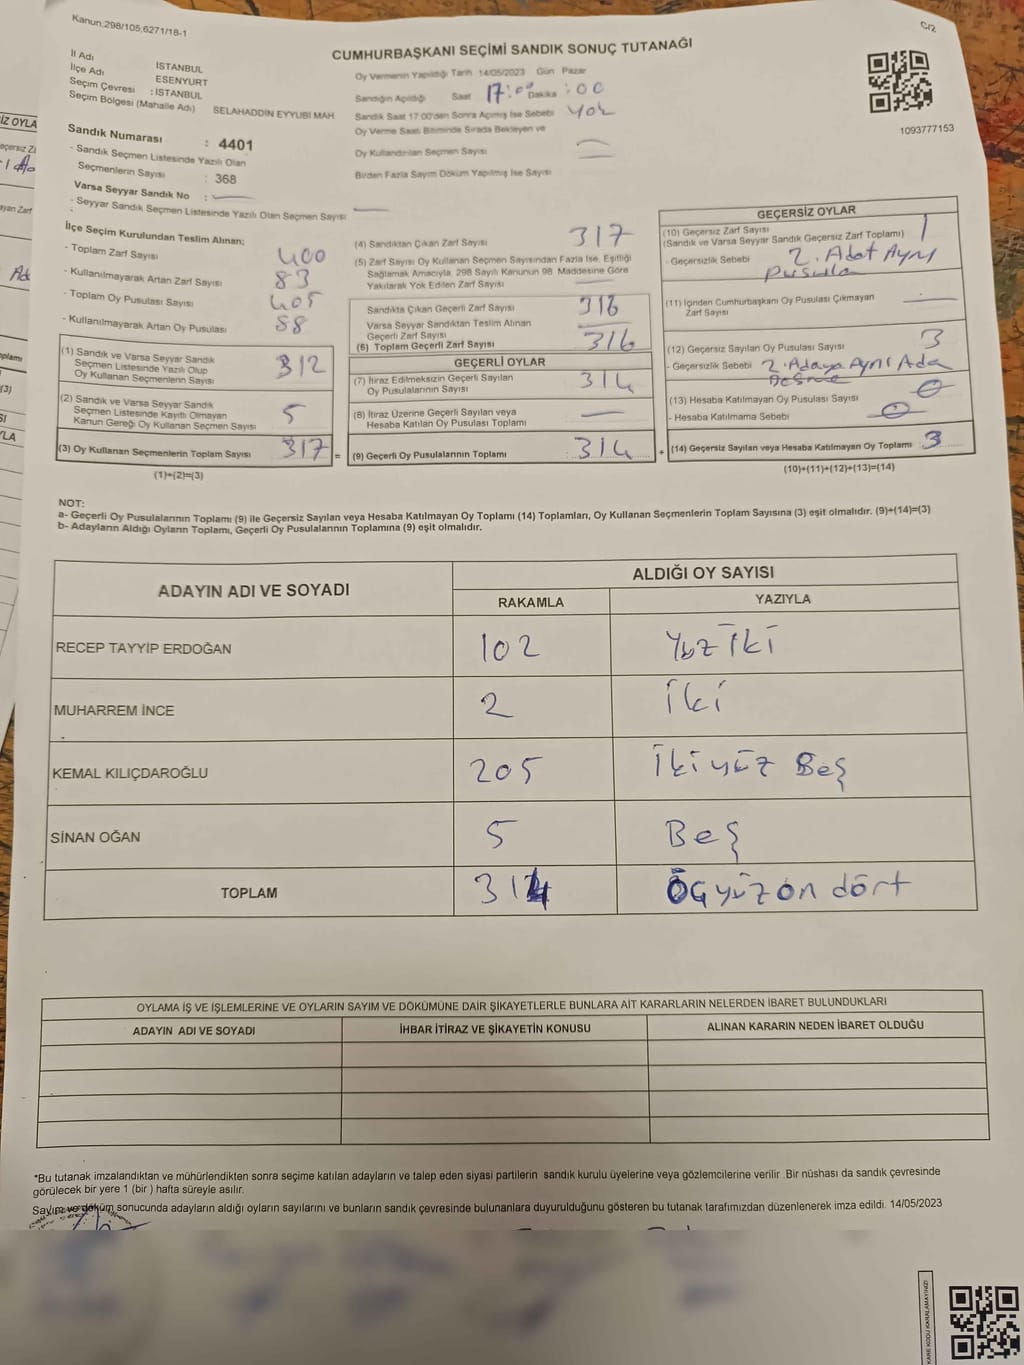 Kanun:298/105,6271/18-1
C1/2
CUMHURBAŞKANI SEÇİMİ SANDIK SONUÇ TUTANAĞI
İl Adı İSTANBUL
İlçe Adı ESENYURT
Seçim Çevresi : İSTANBUL
Seçim Bölgesi (Mahalle Adı) SELAHADDİN EYYUBİ MAH
Oy Vermenin Yapıldığı Tarih 14/05/2023 Gün Pazar
Sandığın Açıldığı Saat 17:00 Dakika :00
Sandık Saat 17:00'den Sonra Açılmış İse Sebebi Yok
Oy Verme Saati Bitiminde Sırada Bekleyen ve
Oy Kullandırılan Seçmen Sayısı
Birden Fazla Sayım Döküm Yapılmış İse Sayısı
1093777153
Sandık Numarası : 4401
- Sandık Seçmen Listesinde Yazılı Olan
Seçmenlerin Sayısı : 368
Varsa Seyyar Sandık No :
- Seyyar Sandık Seçmen Listesinde Yazılı Olan Seçmen Sayısı
İlçe Seçim Kurulundan Teslim Alınan;
- Toplam Zarf Sayısı 400
- Kullanılmayarak Artan Zarf Sayısı 83
- Toplam Oy Pusulası Sayısı 405
- Kullanılmayarak Artan Oy Pusulası 88
(1) Sandık ve Varsa Seyyar Sandık
Seçmen Listesinde Yazılı Olup
Oy Kullanan Seçmenlerin Sayısı 312
(2) Sandık ve Varsa Seyyar Sandık
Seçmen Listesinde Kayıtlı Olmayan
Kanun Gereği Oy Kullanan Seçmen Sayısı 5
(3) Oy Kullanan Seçmenlerin Toplam Sayısı 317 =
(1)+(2)=(3)
(4) Sandıktan Çıkan Zarf Sayısı 317
(5) Zarf Sayısı Oy Kullanan Seçmen Sayısından Fazla İse, Eşitliği
Sağlamak Amacıyla, 298 Sayılı Kanunun 98. Maddesine Göre
Yakılarak Yok Edilen Zarf Sayısı
Sandıkta Çıkan Geçerli Zarf Sayısı 316
Varsa Seyyar Sandıktan Teslim Alınan
Geçerli Zarf Sayısı
(6) Toplam Geçerli Zarf Sayısı 316
GEÇERLİ OYLAR
(7) İtiraz Edilmeksizin Geçerli Sayılan
Oy Pusulalarının Sayısı 314
(8) İtiraz Üzerine Geçerli Sayılan veya
Hesaba Katılan Oy Pusulası Toplamı
(9) Geçerli Oy Pusulalarının Toplamı : 314 +
GEÇERSİZ OYLAR
(10) Geçersiz Zarf Sayısı 1
(Sandık ve Varsa Seyyar Sandık Geçersiz Zarf Toplamı)
- Geçersizlik Sebebi 2. Adet Aynı
Pusula
(11) İçinden Cumhurbaşkanı Oy Pusulası Çıkmayan
Zarf Sayısı
(12) Geçersiz Sayılan Oy Pusulası Sayısı 3
- Geçersizlik Sebebi 2. Adaya Aynı Ada
(13) Hesaba Katılmayan Oy Pusulası Sayısı 0
- Hesaba Katılmama Sebebi 0
(14) Geçersiz Sayılan veya Hesaba Katılmayan Oy Toplamı 3
(10)+(11)+(12)+(13)=(14)
NOT:
a- Geçerli Oy Pusulalarının Toplamı (9) ile Geçersiz Sayılan veya Hesaba Katılmayan Oy Toplamı (14) Toplamları, Oy Kullanan Seçmenlerin Toplam Sayısına (3) eşit olmalıdır. (9)+(14)=(3)
b- Adayların Aldığı Oyların Toplamı, Geçerli Oy Pusulalarının Toplamına (9) eşit olmalıdır.
ADAYIN ADI VE SOYADI
ALDIĞI OY SAYISI
RAKAMLA YAZIYLA
RECEP TAYYİP ERDOĞAN 102 Yüz İki
MUHARREM İNCE 2 İki
KEMAL KILIÇDAROĞLU 205 İkiyüz Beş
SİNAN OĞAN 5 Beş
TOPLAM 314 Üçyüz on dört
OYLAMA İŞ VE İŞLEMLERİNE VE OYLARIN SAYIM VE DÖKÜMÜNE DAİR ŞİKAYETLERLE BUNLARA AİT KARARLARIN NELERDEN İBARET BULUNDUKLARI
ADAYIN ADI VE SOYADI İHBAR İTİRAZ VE ŞİKAYETİN KONUSU ALINAN KARARIN NEDEN İBARET OLDUĞU
*Bu tutanak imzalandıktan ve mühürlendikten sonra seçime katılan adayların ve talep eden siyasi partilerin sandık kurulu üyelerine veya gözlemcilerine verilir. Bir nüshası da sandık çevresinde
görülecek bir yere 1 (bir ) hafta süreyle asılır.
Sayım ve döküm sonucunda adayların aldığı oyların sayılarını ve bunların sandık çevresinde bulunanlara duyurulduğunu gösteren bu tutanak tarafımızdan düzenlenerek imza edildi. 14/05/2023